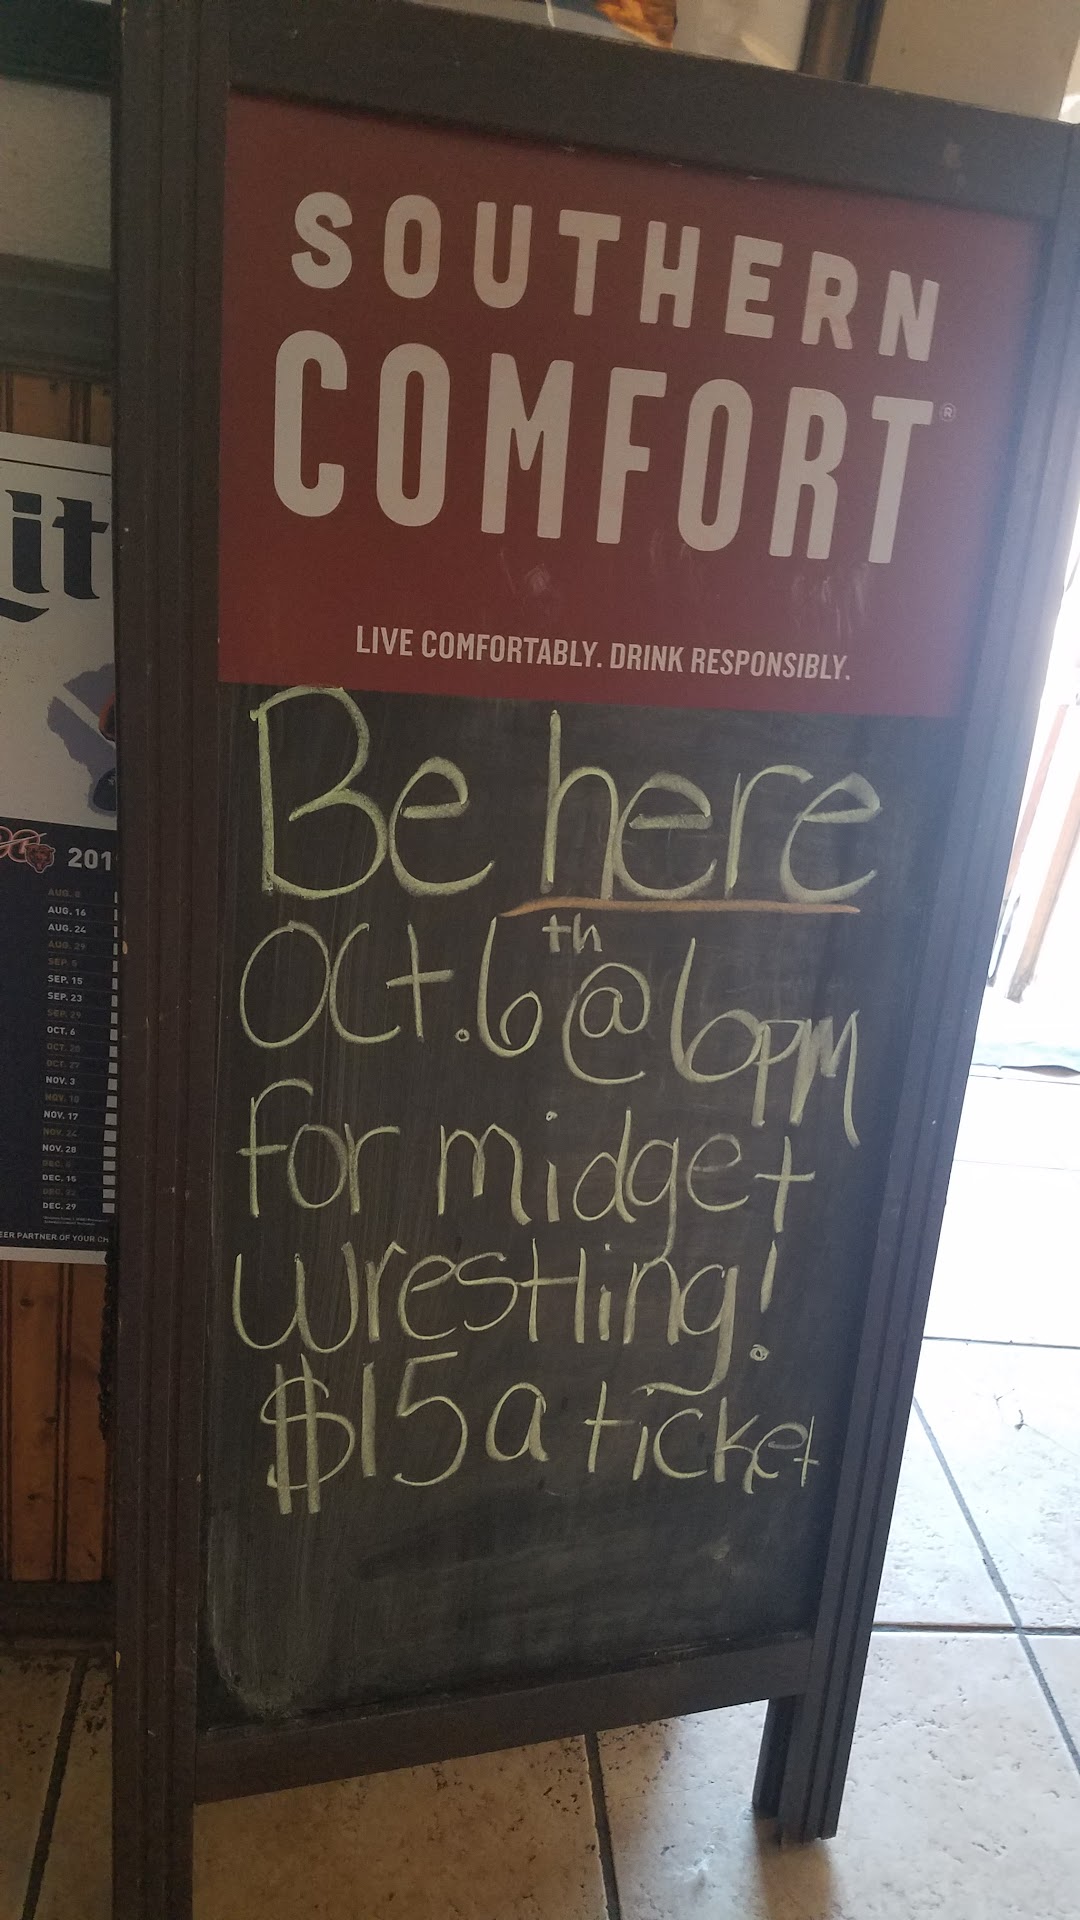 SOUTHERN
COMFORT®
LIVE COMFORTABLY. DRINK RESPONSIBLY.
Be here
Oct. 6th @ 6pm
for midget
wrestling!
$15 a ticket
Lit
201
AUG. 8
AUG. 16
AUG. 24
AUG. 29
SEP. 5
SEP. 15
SEP. 23
SEP. 29
OCT. 6
OCT. 20
OCT. 27
NOV. 3
NOV. 10
NOV. 17
NOV. 24
NOV. 28
DEC. 5
DEC. 15
DEC. 22
DEC. 29
EER PARTNER OF YOUR CH